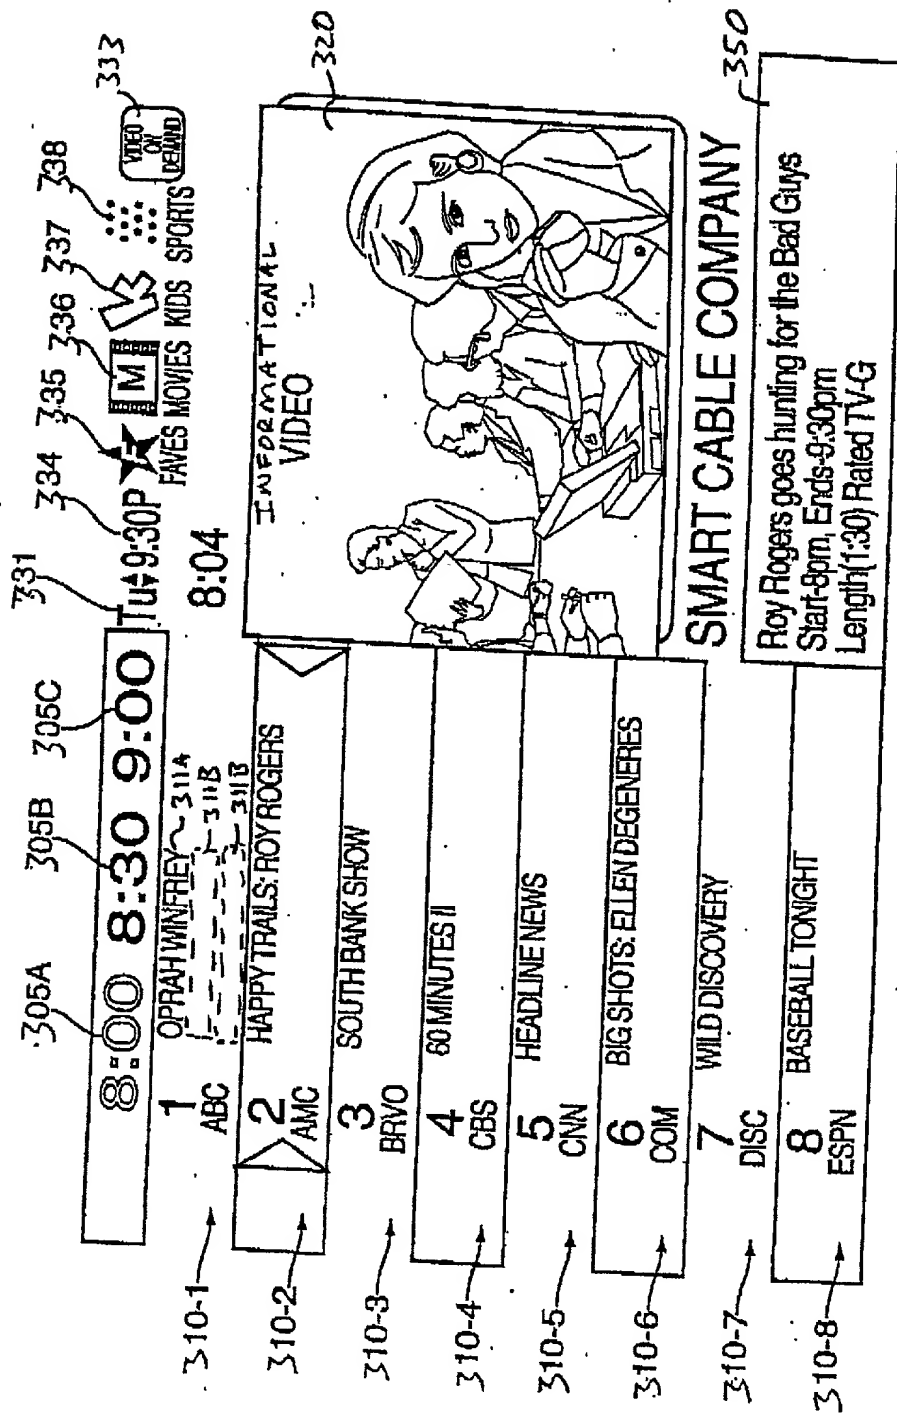 305A
305B
305C
331
334
335
336
337
338
333
8:00 8:30 9:00
Tu 9:30P
F
M
VIDEO ON DEMAND
FAVES MOVIES KIDS SPORTS
8:04
310-1
1 ABC
OPRAH WINFREY
311A
311B
311B
310-2
2 AMC
HAPPY TRAILS: ROY ROGERS
310-3
3 BRVO
SOUTH BANK SHOW
310-4
4 CBS
60 MINUTES II
310-5
5 CNN
HEADLINE NEWS
310-6
6 COM
BIG SHOTS: ELLEN DEGENERES
310-7
7 DISC
WILD DISCOVERY
310-8
8 ESPN
BASEBALL TONIGHT
INFORMATIONAL
VIDEO
320
SMART CABLE COMPANY
350
Roy Rogers goes hunting for the Bad Guys
Start-8pm, Ends-9:30pm
Length(1:30) Rated TV-G